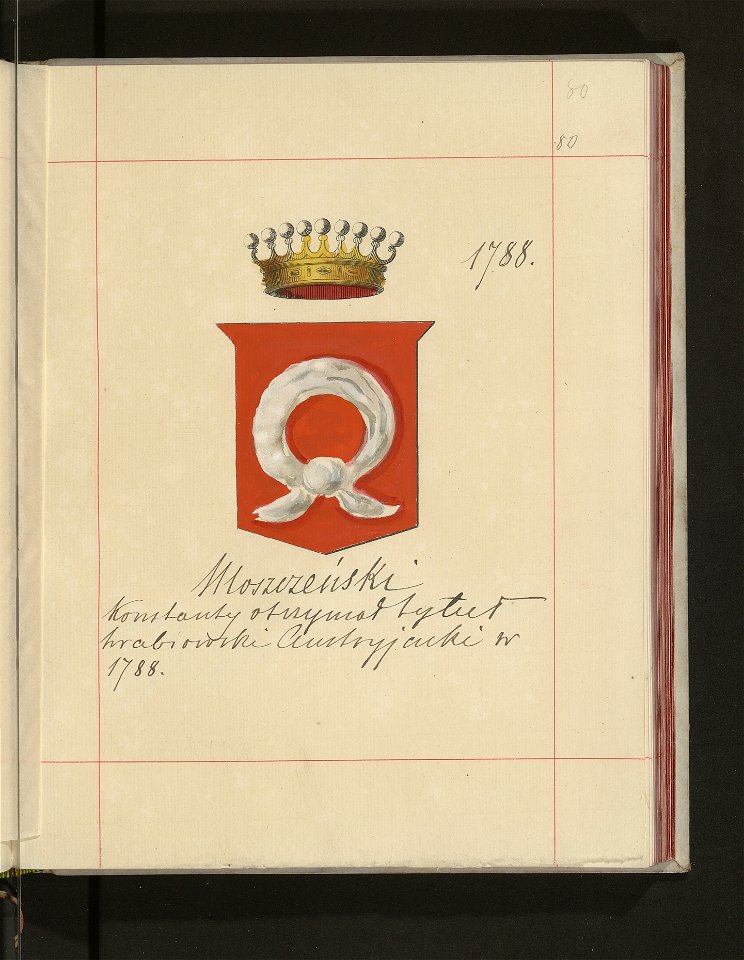 80
80
1788.
Moszczeński
Konstanty otrzymał tytuł
hrabiowski Austryjacki w
1788.